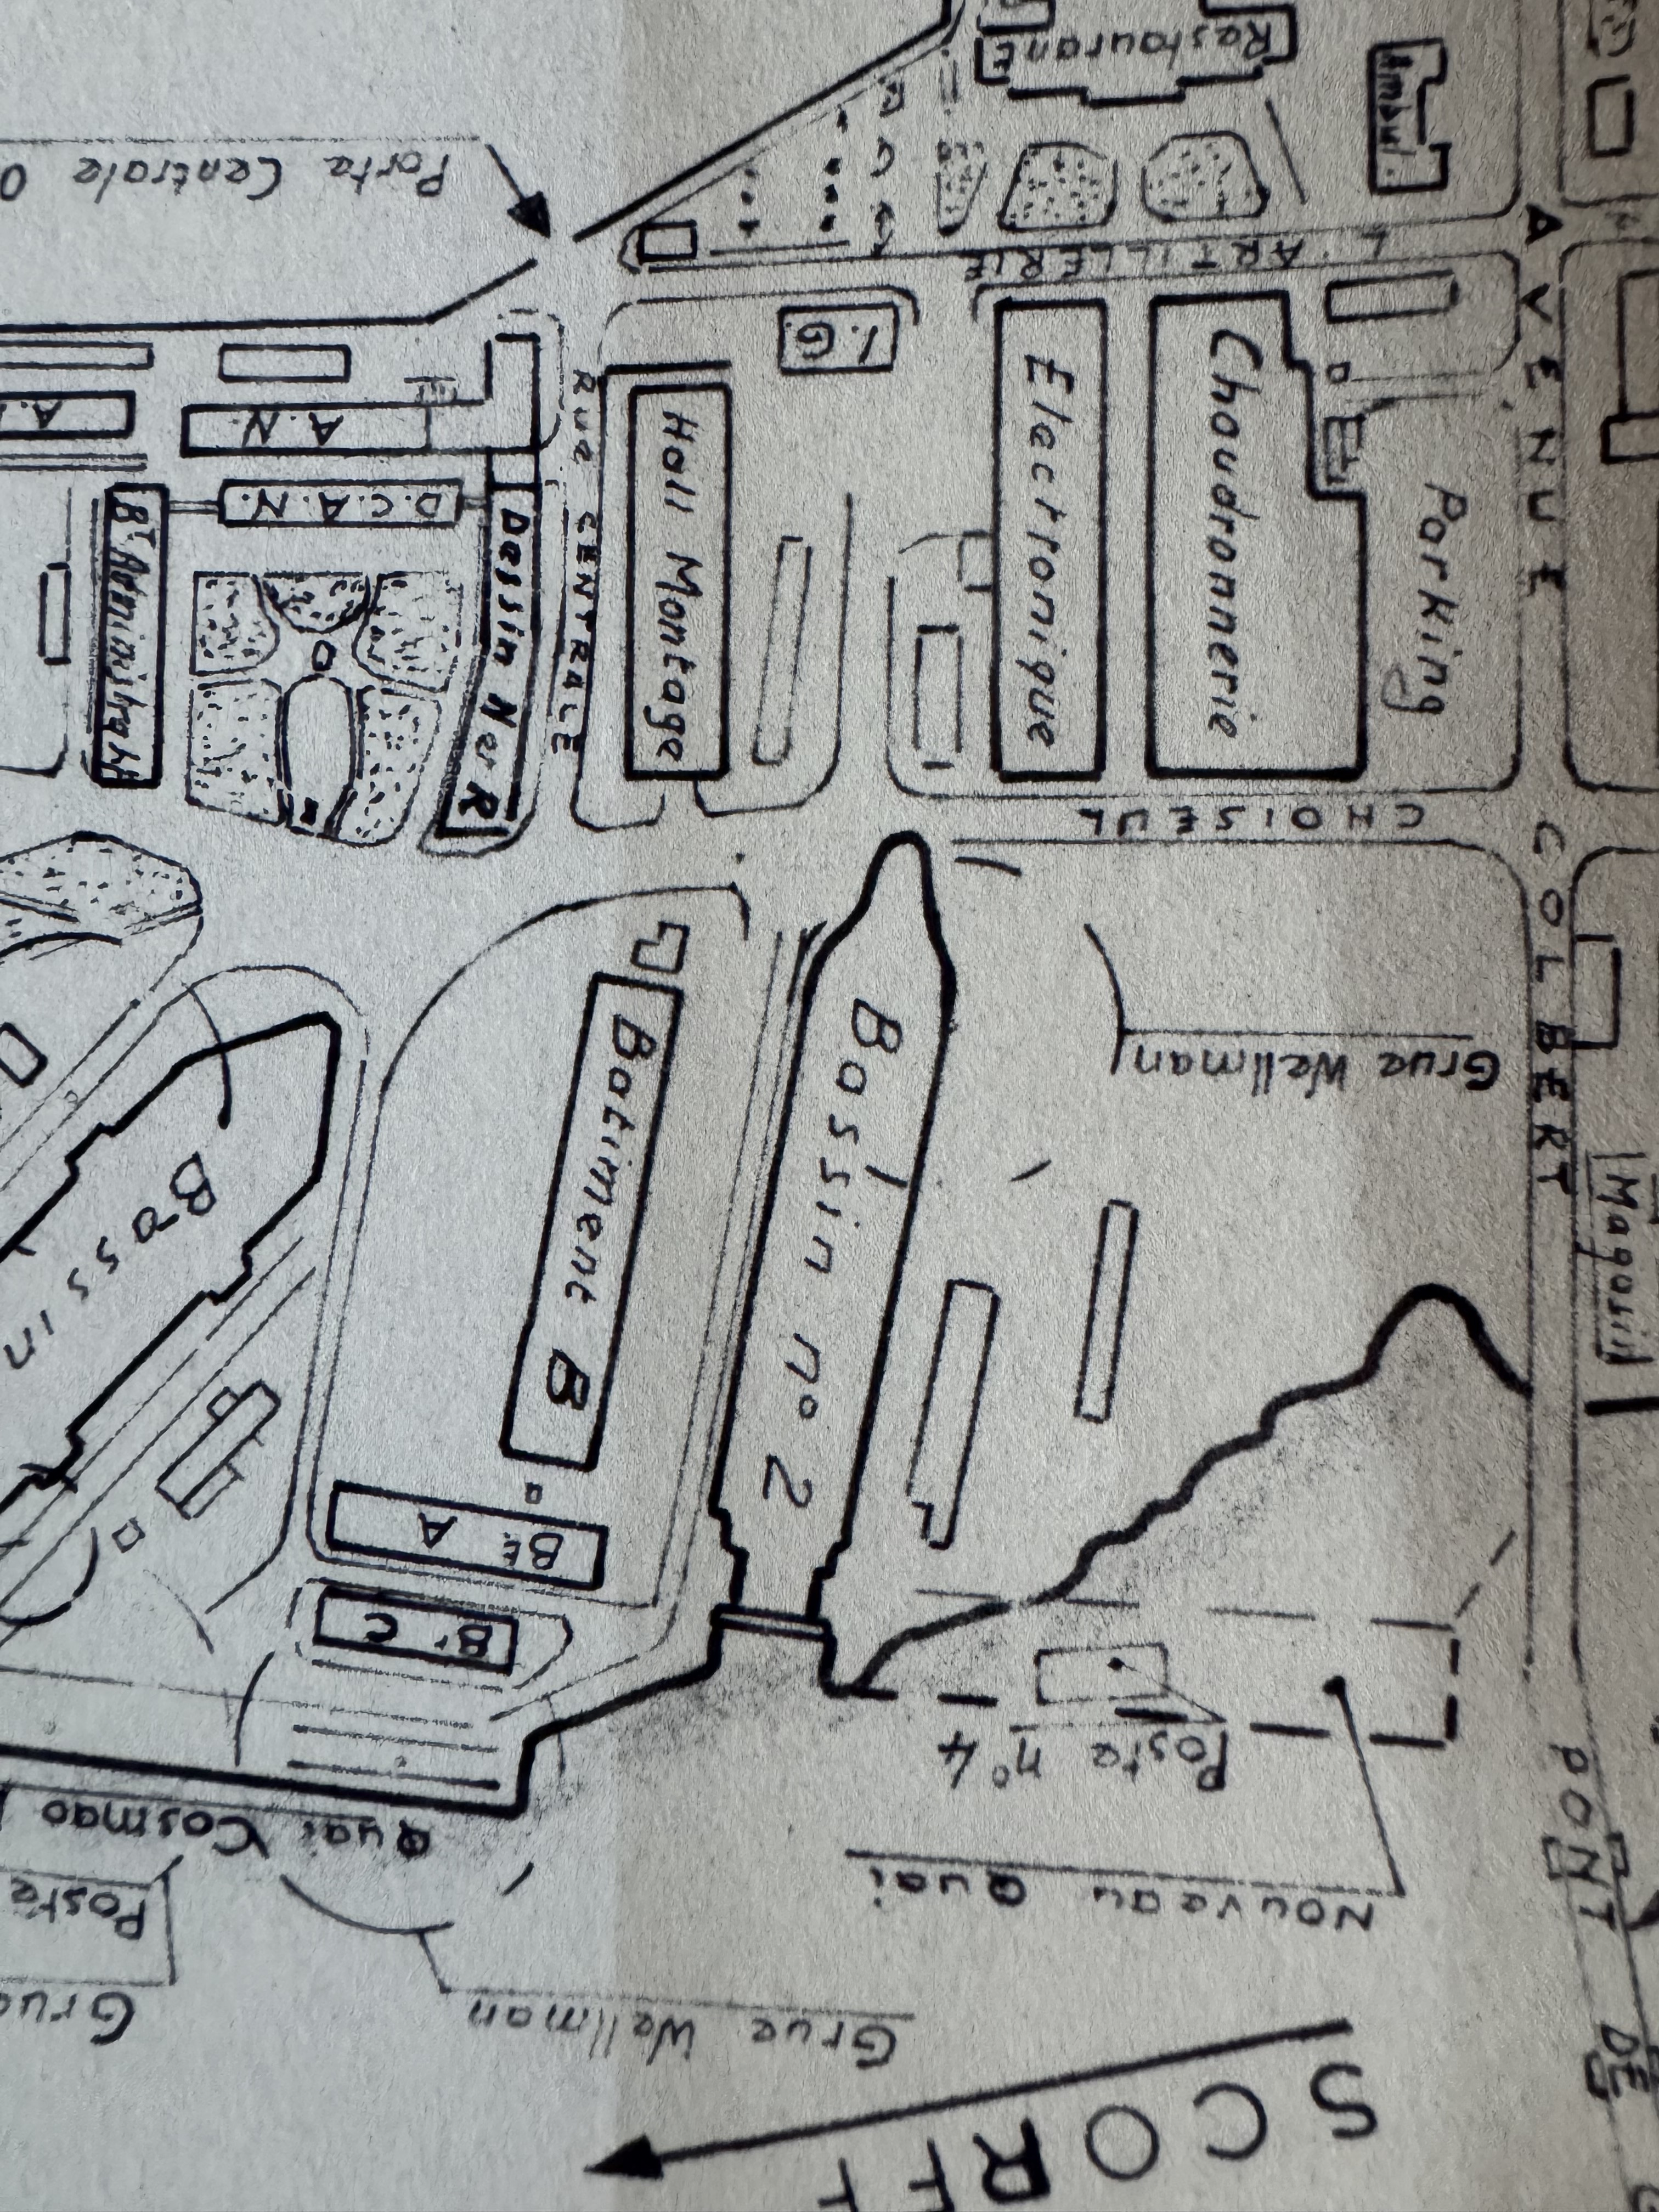 SCORFF
Grue Wellman
Nouveau Quai
Poste n° 4
Poste
Quai Cosmao
PONT DE
Bt C
Bt A
Batiment B
Bassin n° 2
Bassin
Grue Wellman
Magasin
AVENUE COLBERT
CHOISEUL
Parking
Chaudronnerie
Electronique
Hall Montage
RUE CENTRALE
Dessin N et R
D.C.A.N.
A.N.
I.G.
L'ARTILLERIE
Porte Centrale
Restaurant
Ambul.